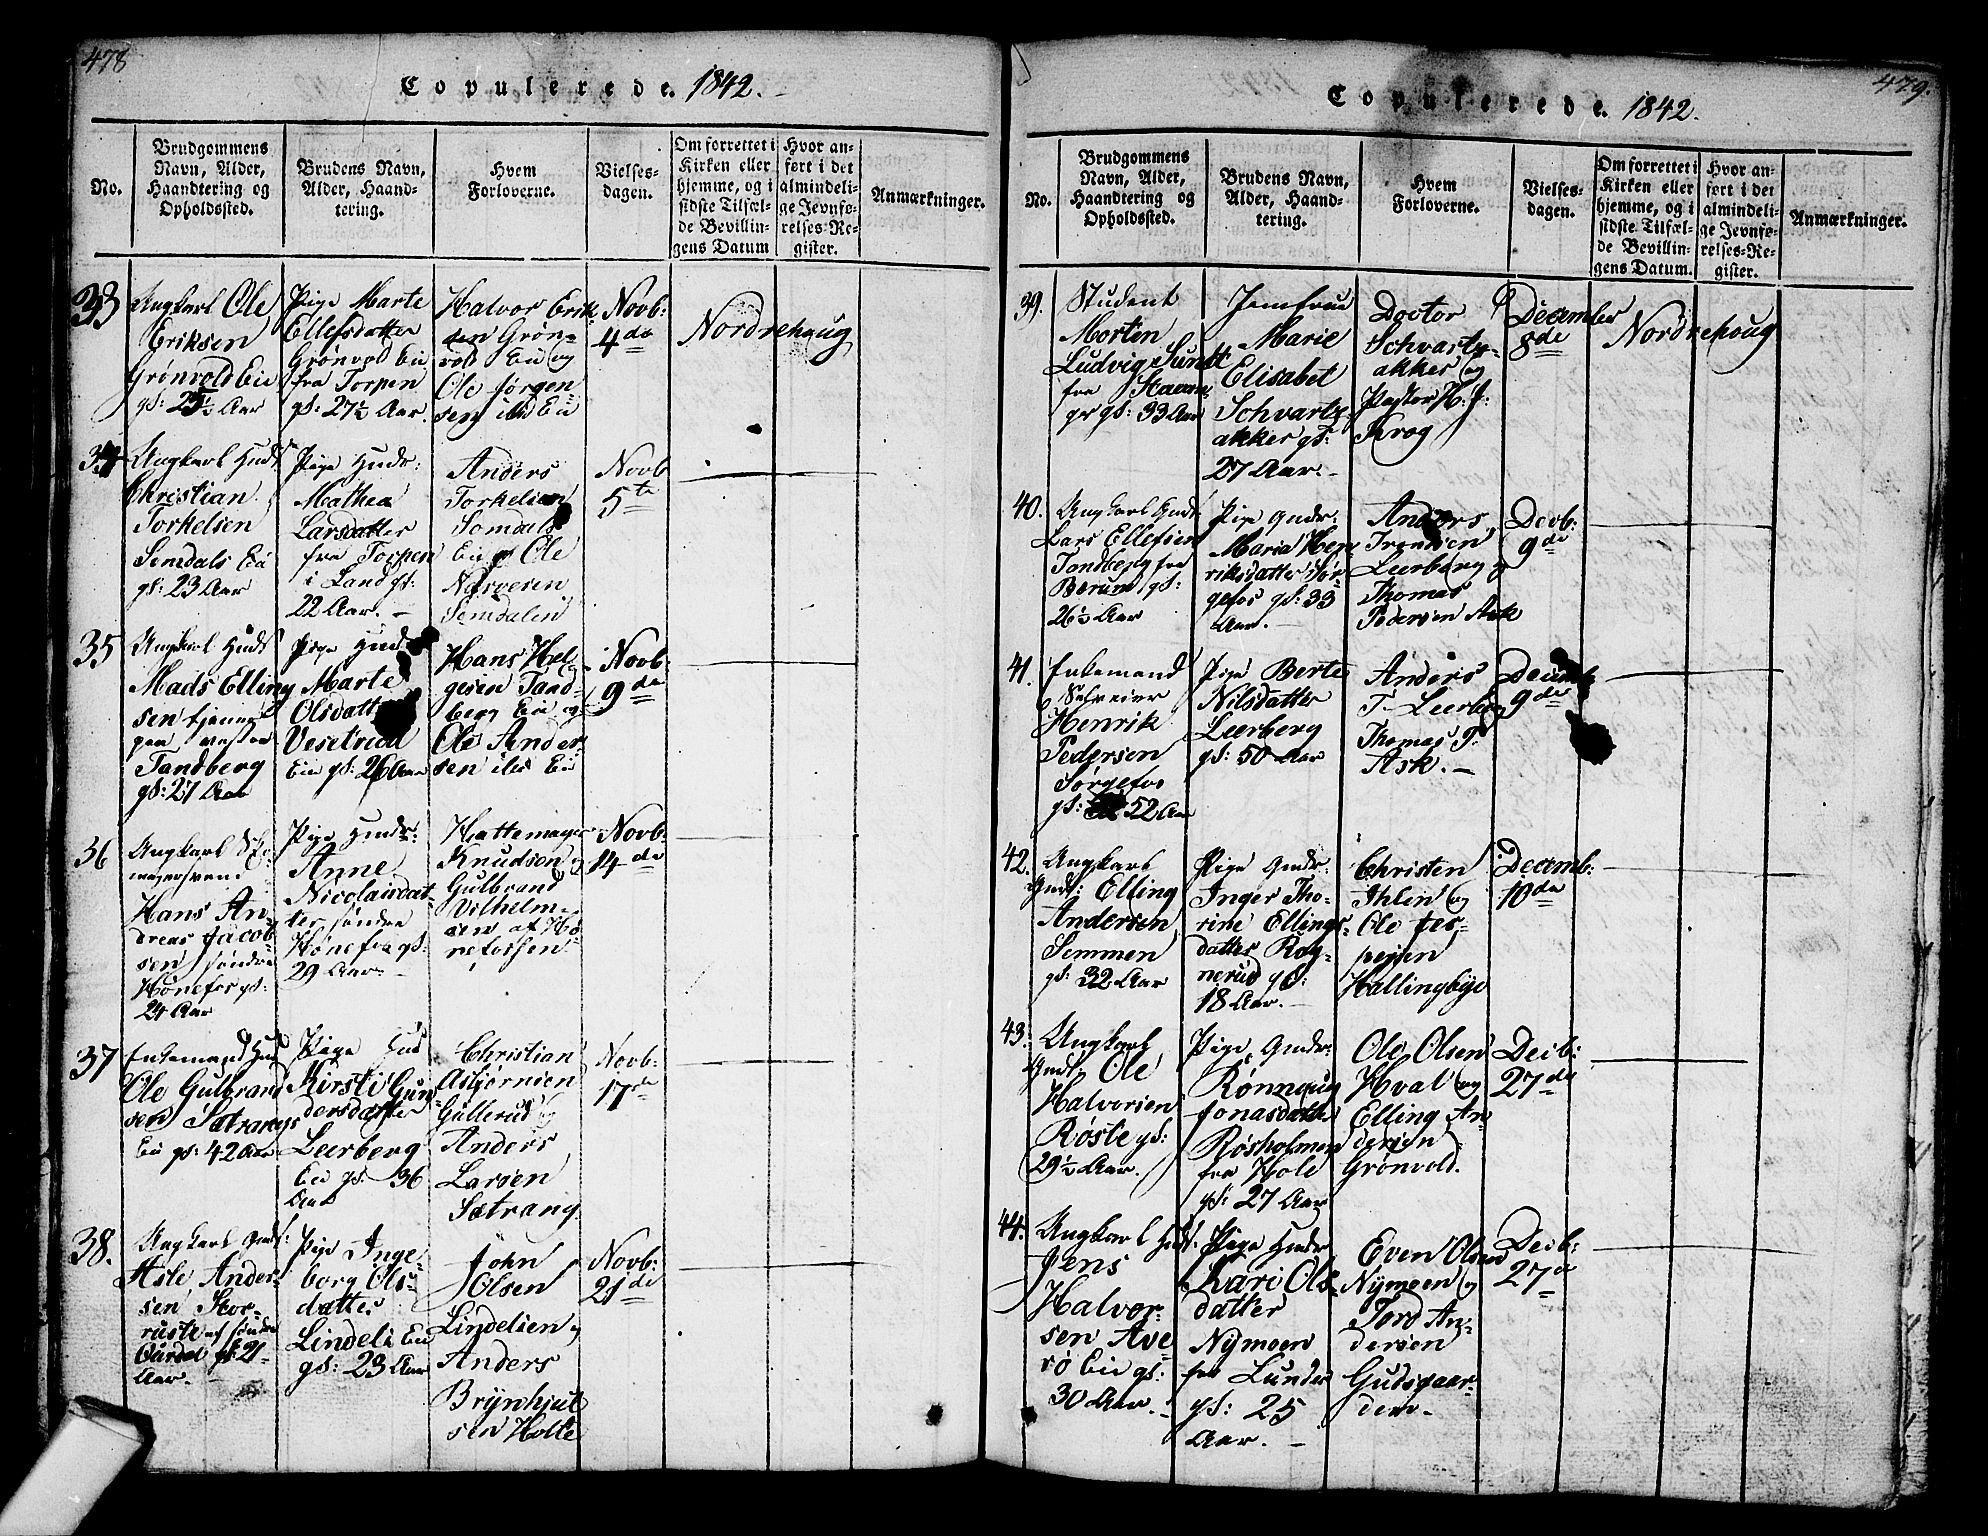 478
Copulerede. 1842.
No.
Brudgommens
Navn, Alder,
Haandtering og
Opholdssted.
Brudens Navn,
Alder, Haand-
tering.
Hvem
Forloverne.
Vielses-
dagen.
Om forrettet i
Kirken eller
hjemme, og i
sidste Tilfæl-
de Bevillin-
gens Datum
Hvor an-
ført i det
almindeli-
ge Jevnfø-
relses-Re-
gister.
Anmærkninger.
33
Ungkarl Ole
Eriksen
Grønvold Eie
gl: 25½ Aar
Pige Marte
Ellefsdatter
Grønvod Eie
fra Torpen
gl: 27½ Aar.
Halvor Erik
Grøn-
vold Eie og
Ole Jørgen
sen ibd Eie
Novb:
4de
Nordrehoug
34
Ungkarl Huds
Christian
Torkelsen
Semdals Eie
gl: 23 Aar
Pige Huds:
Mathea
Larsdatter
fra Torpen
i Land gl:
22 Aar. –
Anders
Torkelsen
Somdals
Eie og Ole
Narvesen
Semdalen
Novb
5te
35
Ungkarl Huds
Mads Elling
sen tjenner
paa vestre
Tandberg
gl: 27 Aar
Pige Huds
Marte
Olsdatt
Vesetrud
Eie gl: 26 Aar
Hans Hel-
gesen Tand-
berg Eie og
Ole Ander
sen ibd Eie
Novb:
9de
36
Ungkarl Sko-
magersvend
Hans An-
dreas Jacob-
sen søndre
Hønefos gl:
24 Aar
Pige Huds:
Anne
Nicolaisdat-
ter søndre
Hønefos gl:
29 Aar. –
Hattemager
Knudsen og
Gulbrand
Vilhelm-
sen af Hø-
nefossen
Novb:
14de
37
Enkemand Huds
Ole Gulbrand
sen Sætrangs
Eie gl: 42 Aar
Pige Huds
Kirsti Gun-
dersdatter
Leerberg
Eie gl: 36
Aar
Christian
Asbjørnsen
Gullerud og
Anders
Larsen
Sætrang
Novb:
17de
38.
Ungkarl Guds:
Asle Ander-
sen Stor-
ruste af søndre
Ourdal gl: 21
Aar. –
Pige Inge-
borg Ols-
datter
Lindeli Eie
gl: 23 Aar
John
Olsen
Lindelien og
Anders
Brynhjut
sen Holte
Novb:
21de
479.
Copulerede. 1842.
No.
Brudgommens
Navn, Alder,
Haandtering og
Opholdssted.
Brudens Navn,
Alder, Haand-
tering.
Hvem
Forloverne.
Vielses-
dagen.
Om forrettet i
Kirken eller
hjemme, og i
sidste Tilfæl-
de Bevillin-
gens Datum.
Hvor an-
ført i det
almindeli-
ge Jevnfø-
relses-Re-
gister.
Anmærkninger.
39.
Student
Morten
Ludvig Sundt
fra Stavan-
ger gl: 33 Aar
Jomfrue
Marie
Elisabet
Schvartz-
akker gl:
27 Aar. –
Doctor
Schvartz-
akker og
Pastor H. J.
Krog
December
8de
Nordrehoug
40.
Ungkarl Guds:
Lars Ellefsen
Tandberg fra
Berum gl:
26½ Aar
Pige Guds:
Maria Hen-
riksdatter Sør-
gefos gl: 33
Aar. –
Anders
Tronsen
Leerberg og
Thomas
Pedersen Ask
Decb:
9de
41.
Enkemand
Selveier
Henrik
Pedersen
Sørgefos
gl: 52 Aar
Pige Berte
Nilsdatter
Leerberg
gl: 50 Aar
Anders
T. Leerberg
Thomas P.
Ask. –
Decemb
9de
42.
Ungkarl
Guds: Elling
Andersen
Semmen
gl: 32 Aar
Pige Guds:
Inger Tho-
rine Ellings-
datter Rog-
nerud gl:
18 Aar. –
Christen
Ihlen og
Ole Jes-
persen
Hallingbye
Decemb:
10de
43.
Ungkarl
Guds: Ole
Halvorsen
Røste gl:
29½ Aar.
Pige Guds:
Rønnaug
Jonasdatter
Rosholmen
fra Hole
gl: 27 Aar
Ole Olsen
Hval og
Elling An-
dersen
Grønvold.
Decb:
27de
44.
Ungkarl Huds:
Jens
Halvor-
sen Ave
rø Eie gl:
30 Aar. –
Pige Huds
Kari Ols-
datter
Nymoen
fra Lunder
gl: 25
Aar. –
Even Olsen
Nymoen og
Tord An-
dersen
Gudsgaar-
den –
Decb:
27de